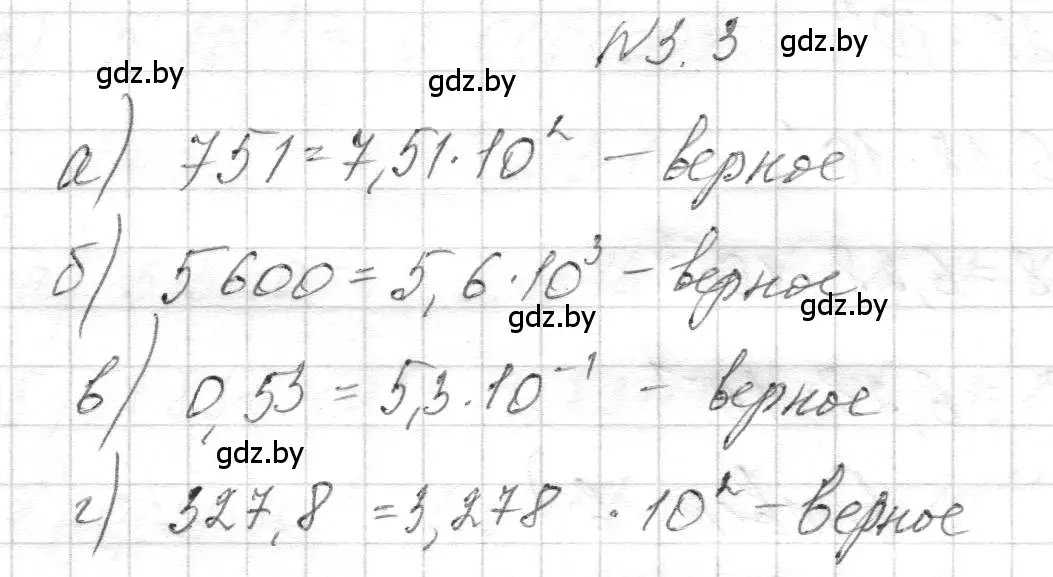 №3.3 gdz.by
gdz.by gdz.by
а) 751 = 7,51·10² – верное
б) 5600 = 5,6·10³ – верное
gdz.by gdz.by
в) 0,53 = 5,3·10⁻¹ – верное
gdz.by
г) 327,8 = 3,278 · 10² – верное